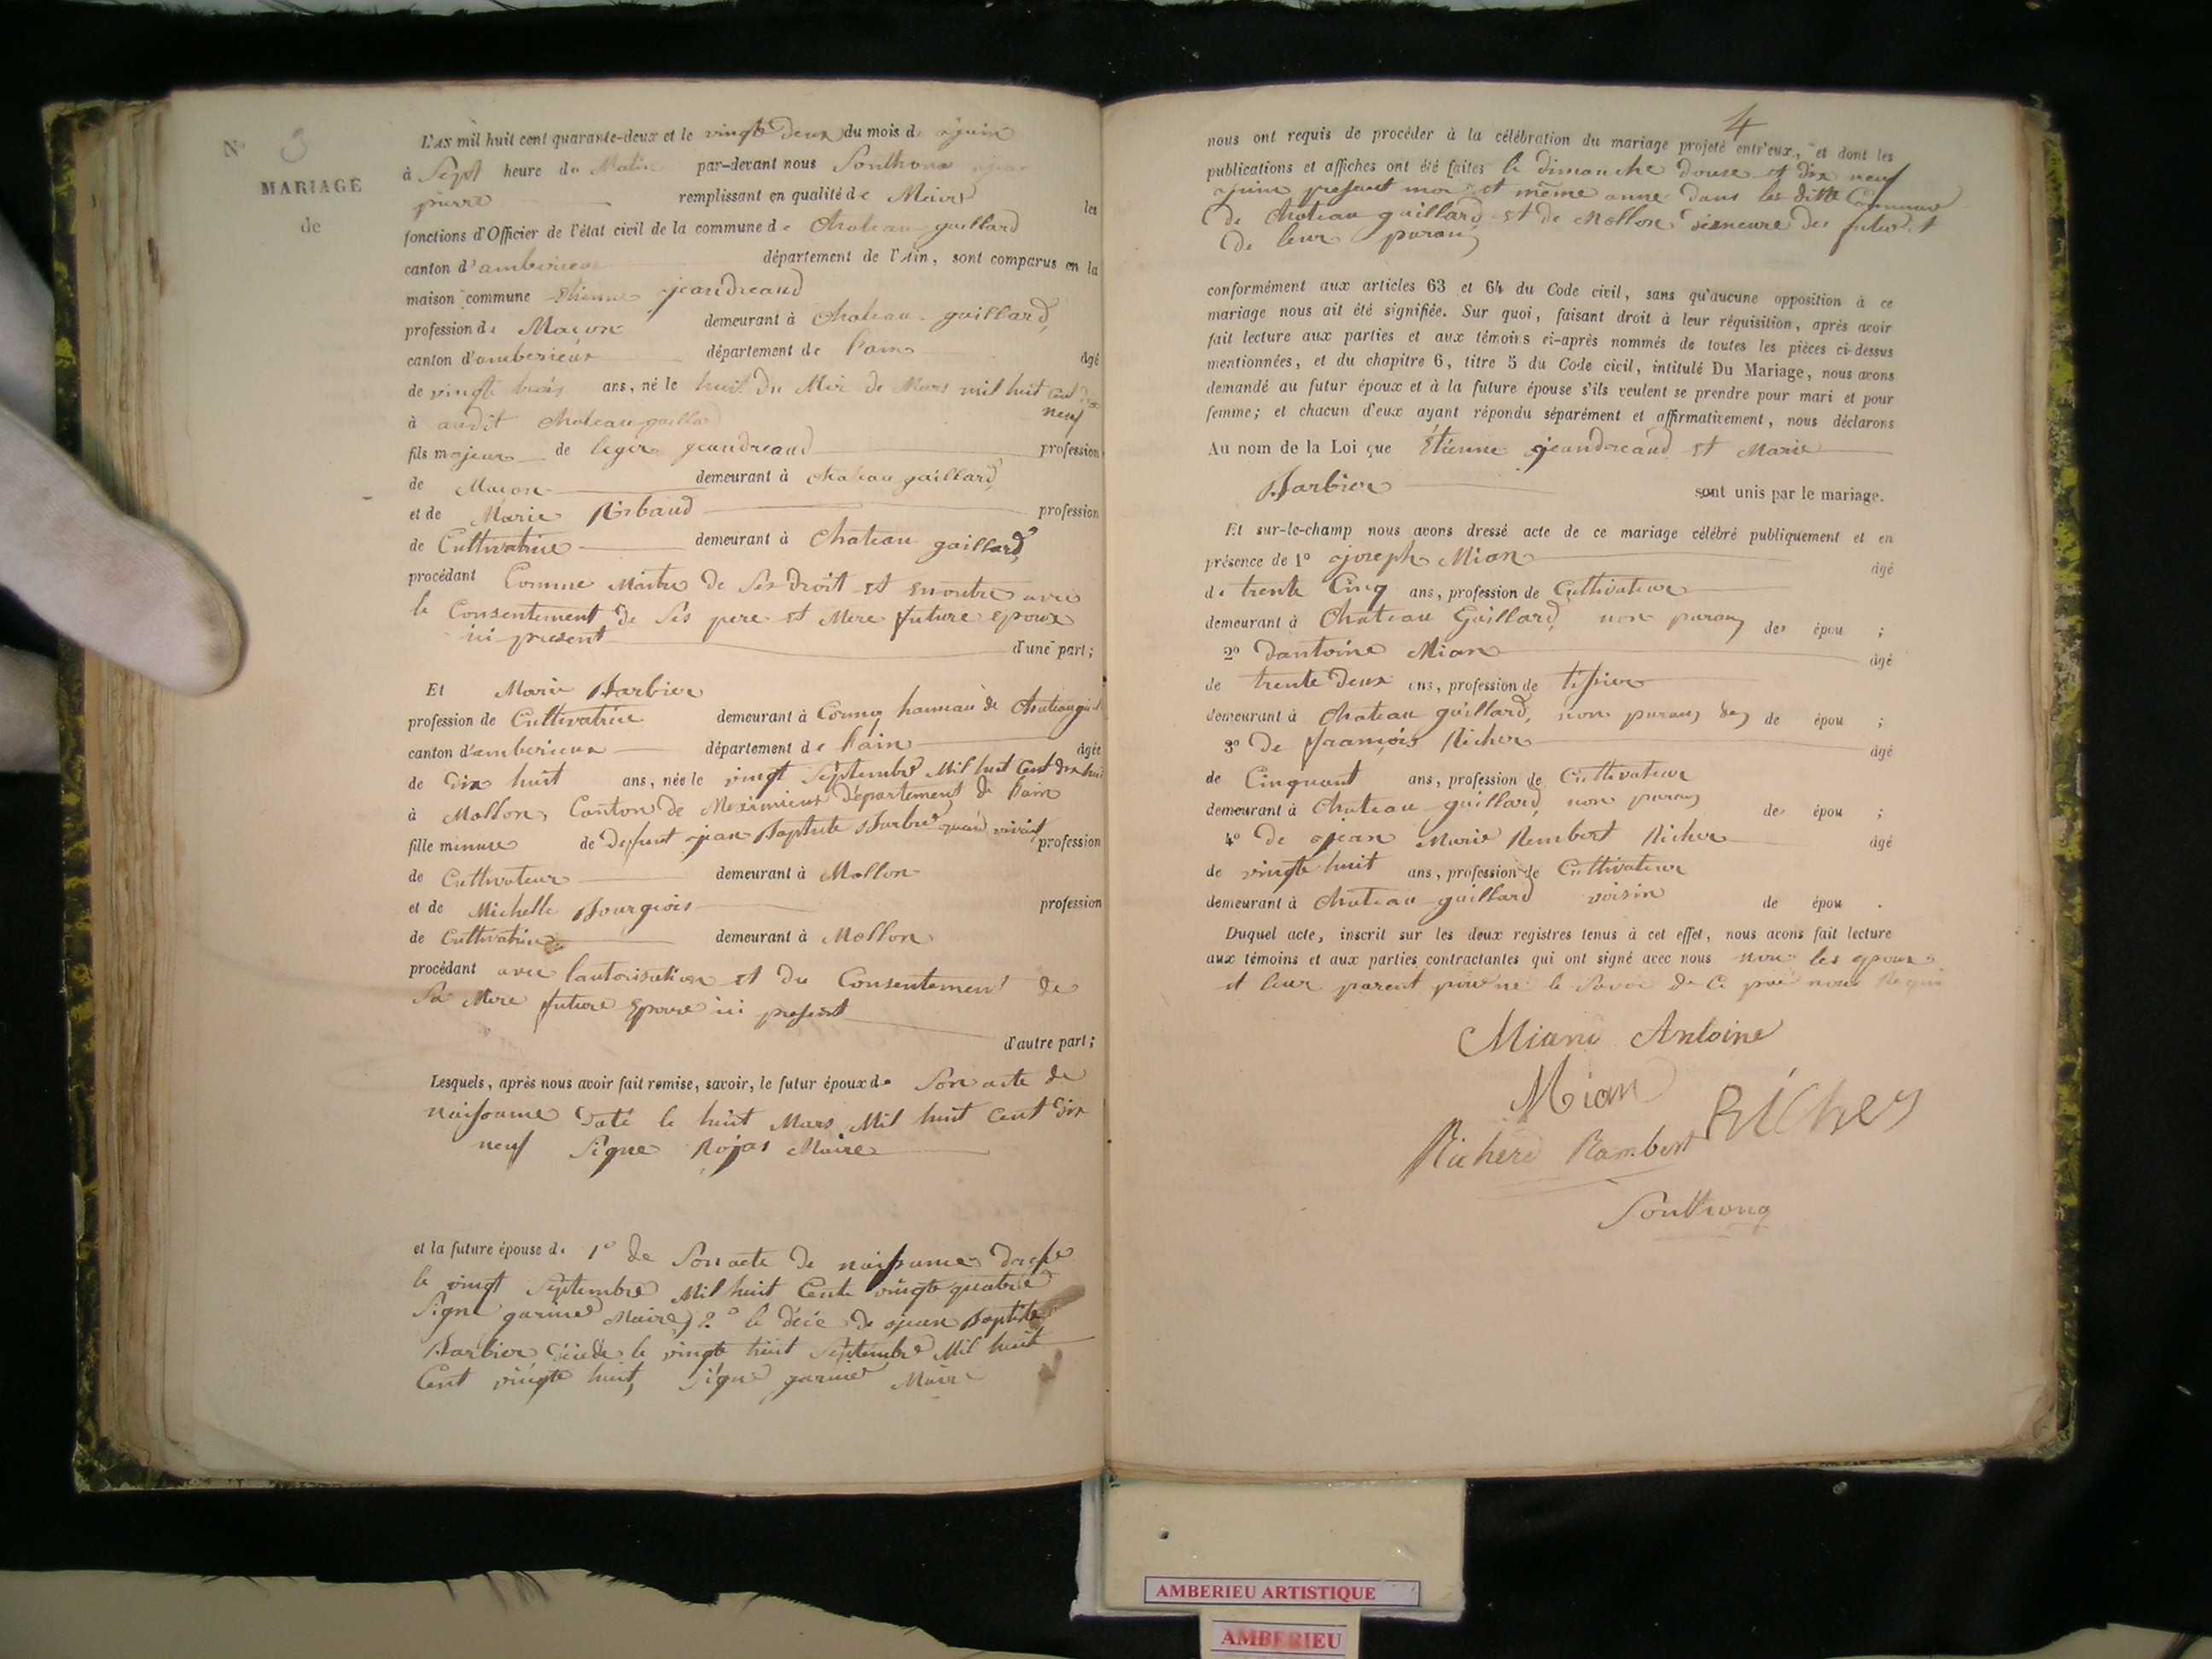 N° 3
MARIAGE
de
L'AN mil huit cent quarante-deux et le vingt Deux du mois de juin
à Sept heure du Matin par-devant nous Southona
pierre remplissant en qualité de Maire les
fonctions d'Officier de l'état civil de la commune de Chateau gaillard
canton d'amberieux département de l'Ain, sont comparus en la
maison commune Etienne jeandreaud
profession de Maçon demeurant à Chateau gaillard
canton d'amberieux département de l'ain âgé
de vingt trois ans, né le huit Du Moi de Mars mil huit Cent dix
neuf
à audit Chateau gaillard
fils majeur de leger jeandreaud profession
de Maçon demeurant à Chateau gaillard
et de Marie Ribaud profession
de Cultivatrice demeurant à Chateau gaillard
procédant Comme Maitre de Ses Droit et Enoutre avec
le Consentement de Ses pere et Mere future epoux
ici present d'une part;
Et Marie Barbier
profession de Cultivatrice demeurant à Cormoz hameau de Chateau gail
canton d'amberieux département de l'ain âgée
de Dix huit ans, née le vingt Septembre Mil huit Cent dix hui
à Mollon Canton de Meximieux Département de l'ain
fille mineure de Defunt jean Baptiste Barbier quand vivait profession
de Cultivateur demeurant à Mollon
et de Michelle Bourgeois profession
de Cultivatrice demeurant à Mollon
procédant avec l'autorisation et du Consentement de
Sa Mere future Epouse ici present
d'autre part;
Lesquels, après nous avoir fait remise, savoir, le futur époux de Son acte de
naissance Daté le huit Mars Mil huit Cent Dix
neuf Signe Rojat Maire
et la future épouse de 1° de Son acte de naissance
le vingt Septembre Mil huit Cent vingt quatre
Signe garnier Maire 2° le décè de jean Baptiste
Barbier décédé le vingt huit Septembre Mil huit
Cent vingt huit, Signe garnier Maire
4
nous ont requis de procéder à la célébration du mariage projeté entr'eux, et dont les
publications et affiches ont été faites le dimanche douse et dix neuf
juin present moi et même anne dans les ditte Commune
de Chateau gaillard et de Mollon demeure des futur et
De leur parans
conformément aux articles 63 et 64 du Code civil, sans qu'aucune opposition à ce
mariage nous ait été signifiée. Sur quoi, faisant droit à leur réquisition, après avoir
fait lecture aux parties et aux témoins ci-après nommés de toutes les pièces ci-dessus
mentionnées, et du chapitre 6, titre 5 du Code civil, intitulé Du Mariage, nous avons
demandé au futur époux et à la future épouse s'ils veulent se prendre pour mari et pour
femme; et chacun d'eux ayant répondu séparément et affirmativement, nous déclarons
Au nom de la Loi que Étienne jeandreaud et Marie
Barbier sont unis par le mariage.
Et sur-le-champ nous avons dressé acte de ce mariage célébré publiquement et en
présence de 1° joseph Mian âgé
de trente Cinq ans, profession de Cultivateur
demeurant à Chateau Gaillard non parans des épou ;
2° Dantoine Mian âgé
de trente Deux ans, profession de tissier
demeurant à Chateau gaillard, non parans des de épou ;
3° De françois Richer âgé
de Cinquant ans, profession de Cultivateur
demeurant à Chateau gaillard non parans des épou ;
4° de jean Marie Rembert Richer âgé
de vingt huit ans, profession de Cultivateur
demeurant à Chateau gaillard voisin de épou .
Duquel acte, inscrit sur les deux registres tenus à cet effet, nous avons fait lecture
aux témoins et aux parties contractantes qui ont signé avec nous non les epoux
et leur parent pour ne le Savoir de Ce par nous Requis
Mian Antoine
Mian
RICher
Richerd Rambert
Southona
AMBERIEU ARTISTIQUE
AMBERIEU